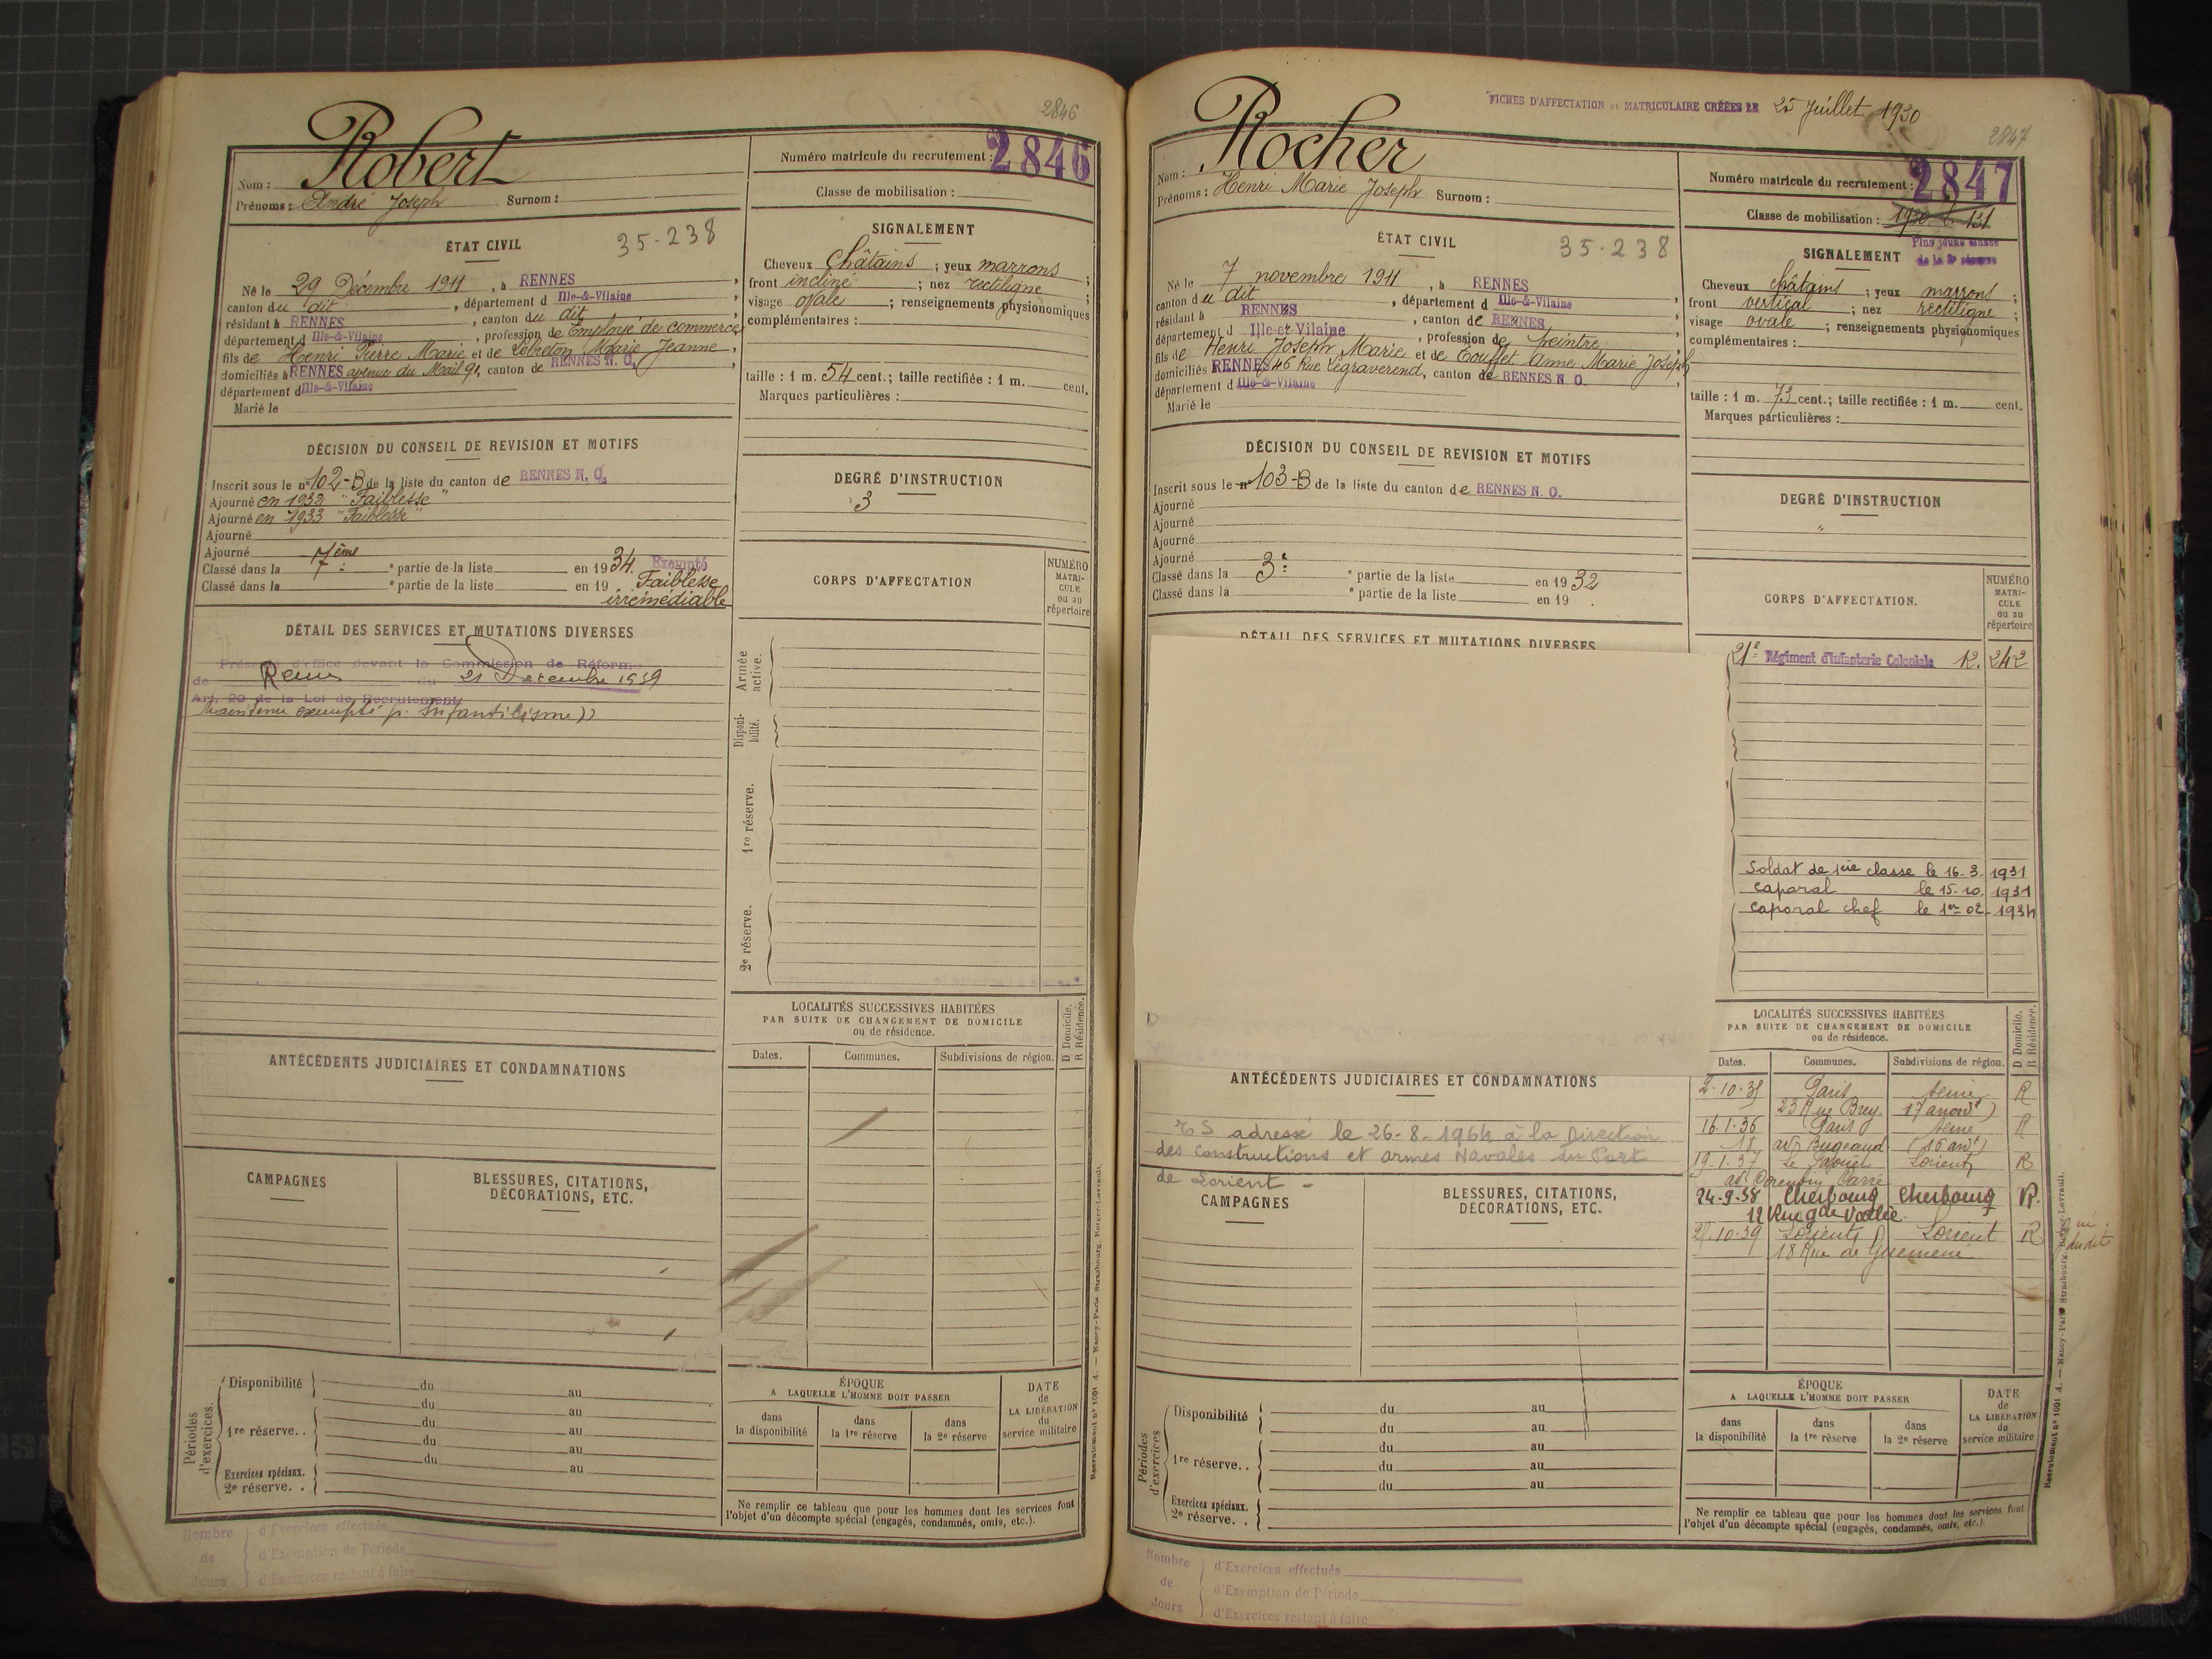 2846
Robert
Nom :
Prénoms : André Joseph Surnom :
Numéro matricule du recrutement : 2846
Classe de mobilisation :
ÉTAT CIVIL 35-238
Né le 29 Décembre 1911, à RENNES,
canton du dit, département d Ille-&-Vilaine
résidant à RENNES, canton du dit,
département d Ille-&-Vilaine, profession de Employé de commerce
fils de Henri Pierre Marie et de Lebreton Marie Jeanne,
domiciliés à RENNES avenue du Mail 91, canton de RENNES N. O.,
département d Ille-&-Vilaine
Marié le
SIGNALEMENT
Cheveux Châtains ; yeux marrons ;
front incliné ; nez rectiligne ;
visage ovale ; renseignements physionomiques
complémentaires :
taille : 1 m. 54 cent.; taille rectifiée : 1 m. cent.
Marques particulières :
DÉCISION DU CONSEIL DE REVISION ET MOTIFS
Inscrit sous le n° 102-B de la liste du canton de RENNES N. O.
Ajourné en 1932 "Faiblesse"
Ajourné en 1933 "Faiblesse"
Ajourné
Ajourné
Classé dans la 7ème ° partie de la liste en 1934. Exempté
Classé dans la ° partie de la liste en 19 . Faiblesse
irrémédiable
DEGRÉ D'INSTRUCTION
3
CORPS D'AFFECTATION
NUMÉRO
MATRI-
CULE
ou au
répertoire
DÉTAIL DES SERVICES ET MUTATIONS DIVERSES
Présenté d'office devant la Commission de Réforme
de Rennes du 21 Décembre 1939
Art. 20 de la Loi de Recrutement
Maintenu exempté p. Infantilisme))
Armée
active.
Disponi-
bilité.
1re réserve.
2e réserve.
LOCALITÉS SUCCESSIVES HABITÉES
PAR SUITE DE CHANGEMENT DE DOMICILE
ou de résidence.
D Domicile.
R Résidence.
Dates. Communes. Subdivisions de région.
ANTÉCÉDENTS JUDICIAIRES ET CONDAMNATIONS
CAMPAGNES
BLESSURES, CITATIONS,
DÉCORATIONS, ETC.
Périodes
d'exercices.
Disponibilité du au
du au
1re réserve. . du au
du au
du au
Exercices spéciaux.
2e réserve. .
ÉPOQUE
A LAQUELLE L'HOMME DOIT PASSER
dans
la disponibilité
dans
la 1re réserve
dans
la 2e réserve
DATE
de
LA LIBÉRATION
du
service militaire
Ne remplir ce tableau que pour les hommes dont les services font
l'objet d'un décompte spécial (engagés, condamnés, omis, etc.).
Nombre
de
Jours
d'Exercices effectués
d'Exemption de Période
d'Exercices restant à faire
Recrutement n° 1001 A. — Nancy-Paris-Strasbourg, Berger-Levrault.
FICHES D'AFFECTATION et MATRICULAIRE CRÉÉES LE 25 Juillet 1930
2847
Rocher
Nom :
Prénoms : Henri Marie Joseph Surnom :
Numéro matricule du recrutement : 2847
Classe de mobilisation :
Plus jeune classe
de la 2e réserve
ÉTAT CIVIL 35-238
Né le 7 novembre 1911, à RENNES
canton du dit, département d Ille-&-Vilaine
résidant à RENNES, canton de RENNES,
département d Ille-et-Vilaine, profession de peintre
fils de Henri Joseph Marie et de Anne Marie Joseph
domiciliés RENNES 46 Rue Legraverend, canton de RENNES N. O.
département d Ille-&-Vilaine
Marié le
SIGNALEMENT
Cheveux châtains ; yeux marrons ;
front vertical ; nez rectiligne ;
visage ovale ; renseignements physionomiques
complémentaires :
taille : 1 m. 73 cent.; taille rectifiée : 1 m. cent.
Marques particulières :
DÉCISION DU CONSEIL DE REVISION ET MOTIFS
Inscrit sous le n° 103-B de la liste du canton de RENNES N. O.
Ajourné
Ajourné
Ajourné
Ajourné
Classé dans la 3e ° partie de la liste en 1932
Classé dans la ° partie de la liste en 19 .
DEGRÉ D'INSTRUCTION
"
CORPS D'AFFECTATION.
NUMÉRO
MATRI-
CULE
ou au
répertoire
DÉTAIL DES SERVICES ET MUTATIONS DIVERSES
21e Régiment d'Infanterie Coloniale 12. 242
Soldat de 1ère classe le 16-3-1931
Caporal le 15-10-1931
Caporal chef le 1er-02-1934
LOCALITÉS SUCCESSIVES HABITÉES
PAR SUITE DE CHANGEMENT DE DOMICILE
ou de résidence.
D Domicile.
R Résidence.
Dates. Communes. Subdivisions de région.
2.10.35 Paris Seine R
23 Rue Brey 17 arrondt)
16.1.36 Paris Seine R
18 av. Bugeaud (16 arrt)
19-1.37 Le Lorient R
24-9-38 Cherbourg Cherbourg R.
12 Rue gde Vallée
10-39 Lorient Lorient R
18 Rue de Guemené
ANTÉCÉDENTS JUDICIAIRES ET CONDAMNATIONS
adressé le 26-8-1964 à la Direction
des Constructions et armes Navales du Port
de Lorient -
CAMPAGNES
BLESSURES, CITATIONS,
DÉCORATIONS, ETC.
Périodes
d'exercices
Disponibilité du au
du au
1re réserve. . du au
du au
du au
Exercices spéciaux.
2e réserve. .
ÉPOQUE
A LAQUELLE L'HOMME DOIT PASSER
dans
la disponibilité
dans
la 1re réserve
dans
la 2e réserve
DATE
de
LA LIBÉRATION
du
service militaire
Ne remplir ce tableau que pour les hommes dont les services font
l'objet d'un décompte spécial (engagés, condamnés, omis, etc.).
Nombre
de
Jours
d'Exercices effectués
d'Exemption de Période
d'Exercices restant à faire
Recrutement n° 1001 A. — Nancy-Paris-Strasbourg, Berger-Levrault.